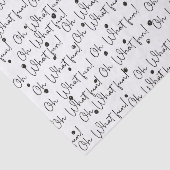 Oh What fun! Oh What fun!
Oh What fun! Oh What fun!
Oh What fun! Oh What fun!
Oh What fun! Oh What fun!
Oh What fun! Oh What fun!
Oh What fun! Oh What fun!
Oh What fun!
Oh What fun!